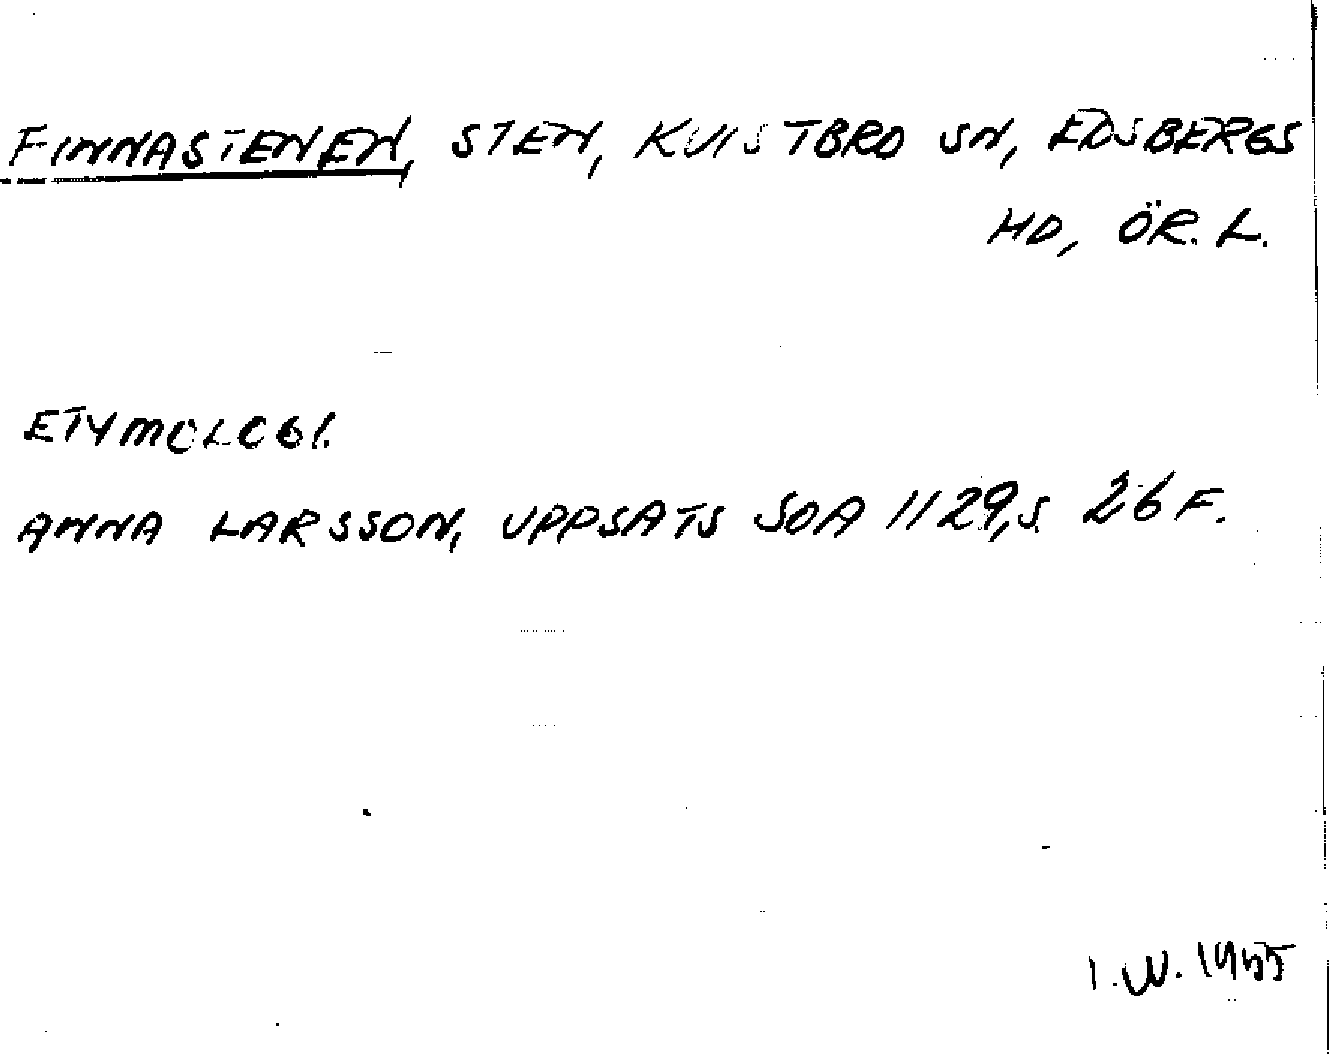 FINNASTENEN, STEN, KVISTBRO SN, EDSBERGS
HD, ÖR. L.
ETYMOLOGI.
ANNA LARSSON, UPPSATS SOA 1129, S. 26 F.
I.W. 1955